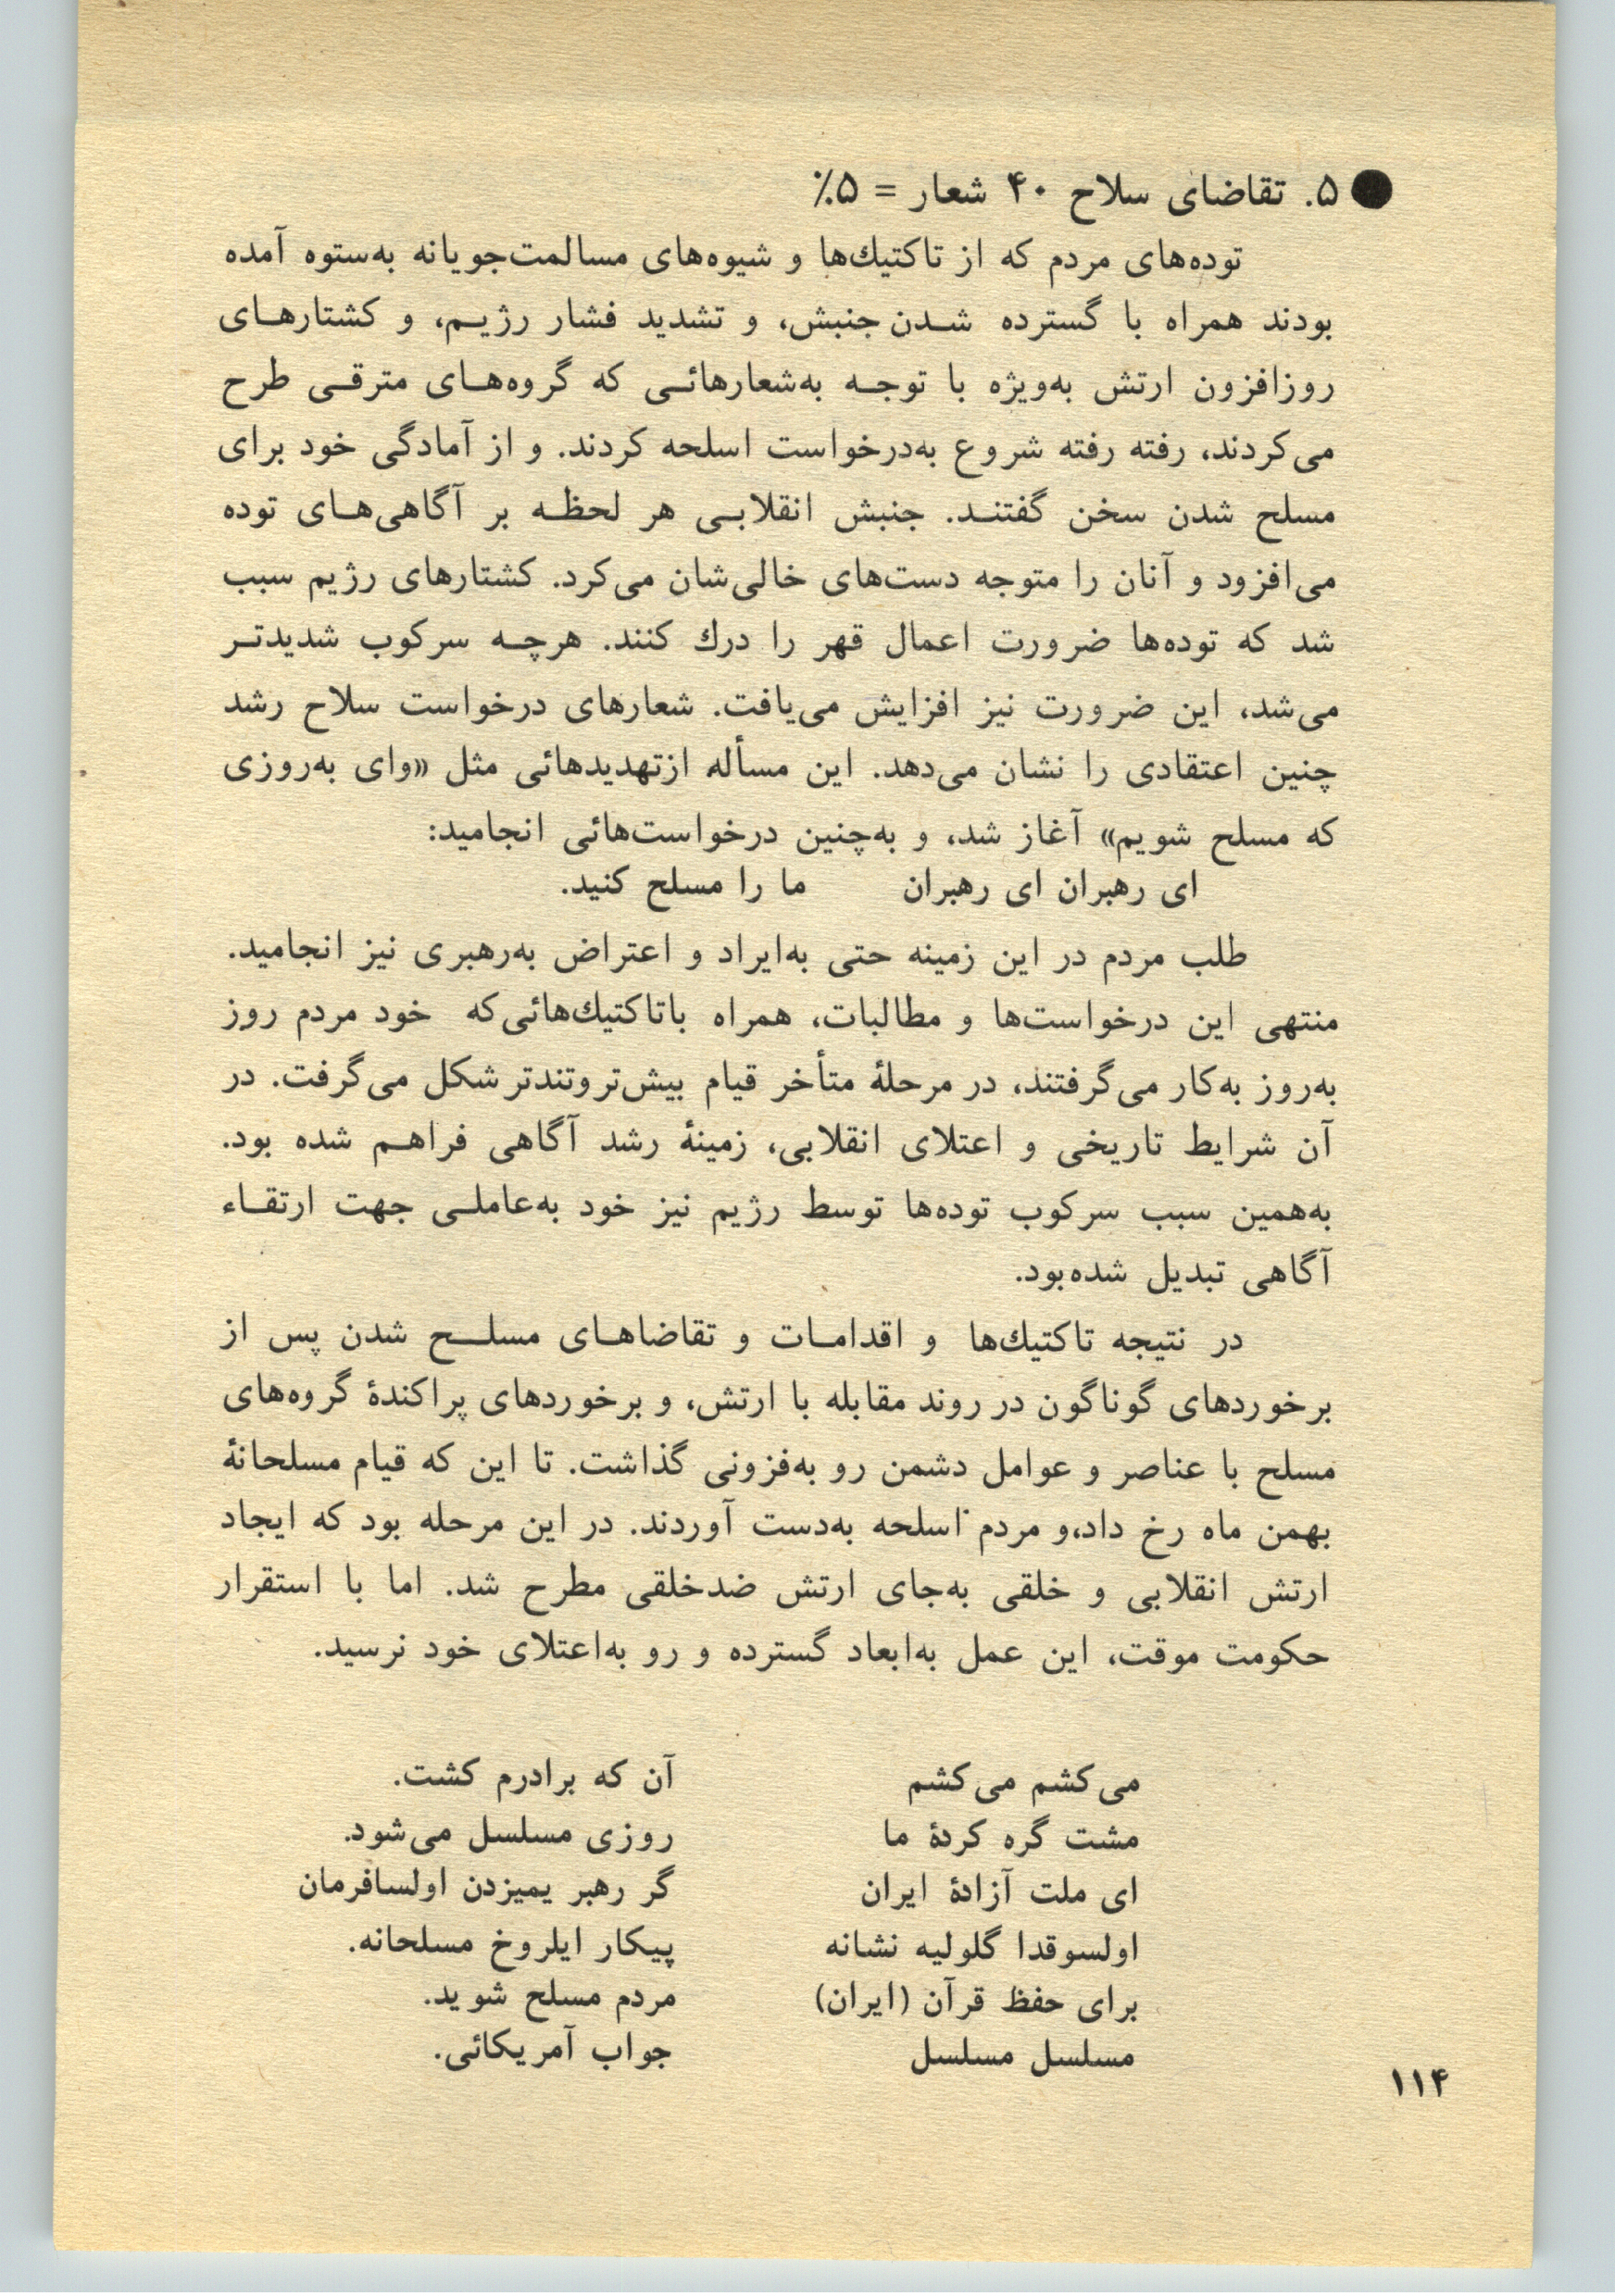 ● ۵. تقاضای سلاح ۴۰ شعار = ۵٪
توده‌های مردم که از تاکتیك‌ها و شیوه‌های مسالمت‌جویانه به‌ستوه آمده
بودند همراه با گسترده شدن جنبش، و تشدید فشار رژیم، و کشتارهای
روزافزون ارتش به‌ویژه با توجه به‌شعارهائی که گروه‌های مترقی طرح
می‌کردند، رفته رفته شروع به‌درخواست اسلحه کردند. و از آمادگی خود برای
مسلح شدن سخن گفتند. جنبش انقلابی هر لحظه بر آگاهی‌های توده
می‌افزود و آنان را متوجه دست‌های خالی‌شان می‌کرد. کشتارهای رژیم سبب
شد که توده‌ها ضرورت اعمال قهر را درك کنند. هرچه سرکوب شدیدتر
می‌شد، این ضرورت نیز افزایش می‌یافت. شعارهای درخواست سلاح رشد
چنین اعتقادی را نشان می‌دهد. این مسأله ازتهدیدهائی مثل «وای به‌روزی
که مسلح شویم» آغاز شد، و به‌چنین درخواست‌هائی انجامید:
ای رهبران ای رهبران ما را مسلح کنید.
طلب مردم در این زمینه حتی به‌ایراد و اعتراض به‌رهبری نیز انجامید.
منتهی این درخواست‌ها و مطالبات، همراه باتاکتیك‌هائی‌که خود مردم روز
به‌روز به‌کار می‌گرفتند، در مرحلهٔ متأخر قیام بیش‌تروتندتر شکل می‌گرفت. در
آن شرایط تاریخی و اعتلای انقلابی، زمینهٔ رشد آگاهی فراهم شده بود.
به‌همین سبب سرکوب توده‌ها توسط رژیم نیز خود به‌عاملی جهت ارتقاء
آگاهی تبدیل شده‌بود.
در نتیجه تاکتیك‌ها و اقدامات و تقاضاهای مسلح شدن پس از
برخوردهای گوناگون در روند مقابله با ارتش، و برخوردهای پراکندهٔ گروه‌های
مسلح با عناصر و عوامل دشمن رو به‌فزونی گذاشت. تا این که قیام مسلحانهٔ
بهمن ماه رخ داد،و مردم اسلحه به‌دست آوردند. در این مرحله بود که ایجاد
ارتش انقلابی و خلقی به‌جای ارتش ضدخلقی مطرح شد. اما با استقرار
حکومت موقت، این عمل به‌ابعاد گسترده و رو به‌اعتلای خود نرسید.
می‌کشم می‌کشم آن که برادرم کشت.
مشت گره کردهٔ ما روزی مسلسل می‌شود.
ای ملت آزادهٔ ایران گر رهبر یمیزدن اولسافرمان
اولسوقدا گلولیه نشانه پیکار ایلروخ مسلحانه.
برای حفظ قرآن (ایران) مردم مسلح شوید.
مسلسل مسلسل جواب آمریکائی.
۱۱۴